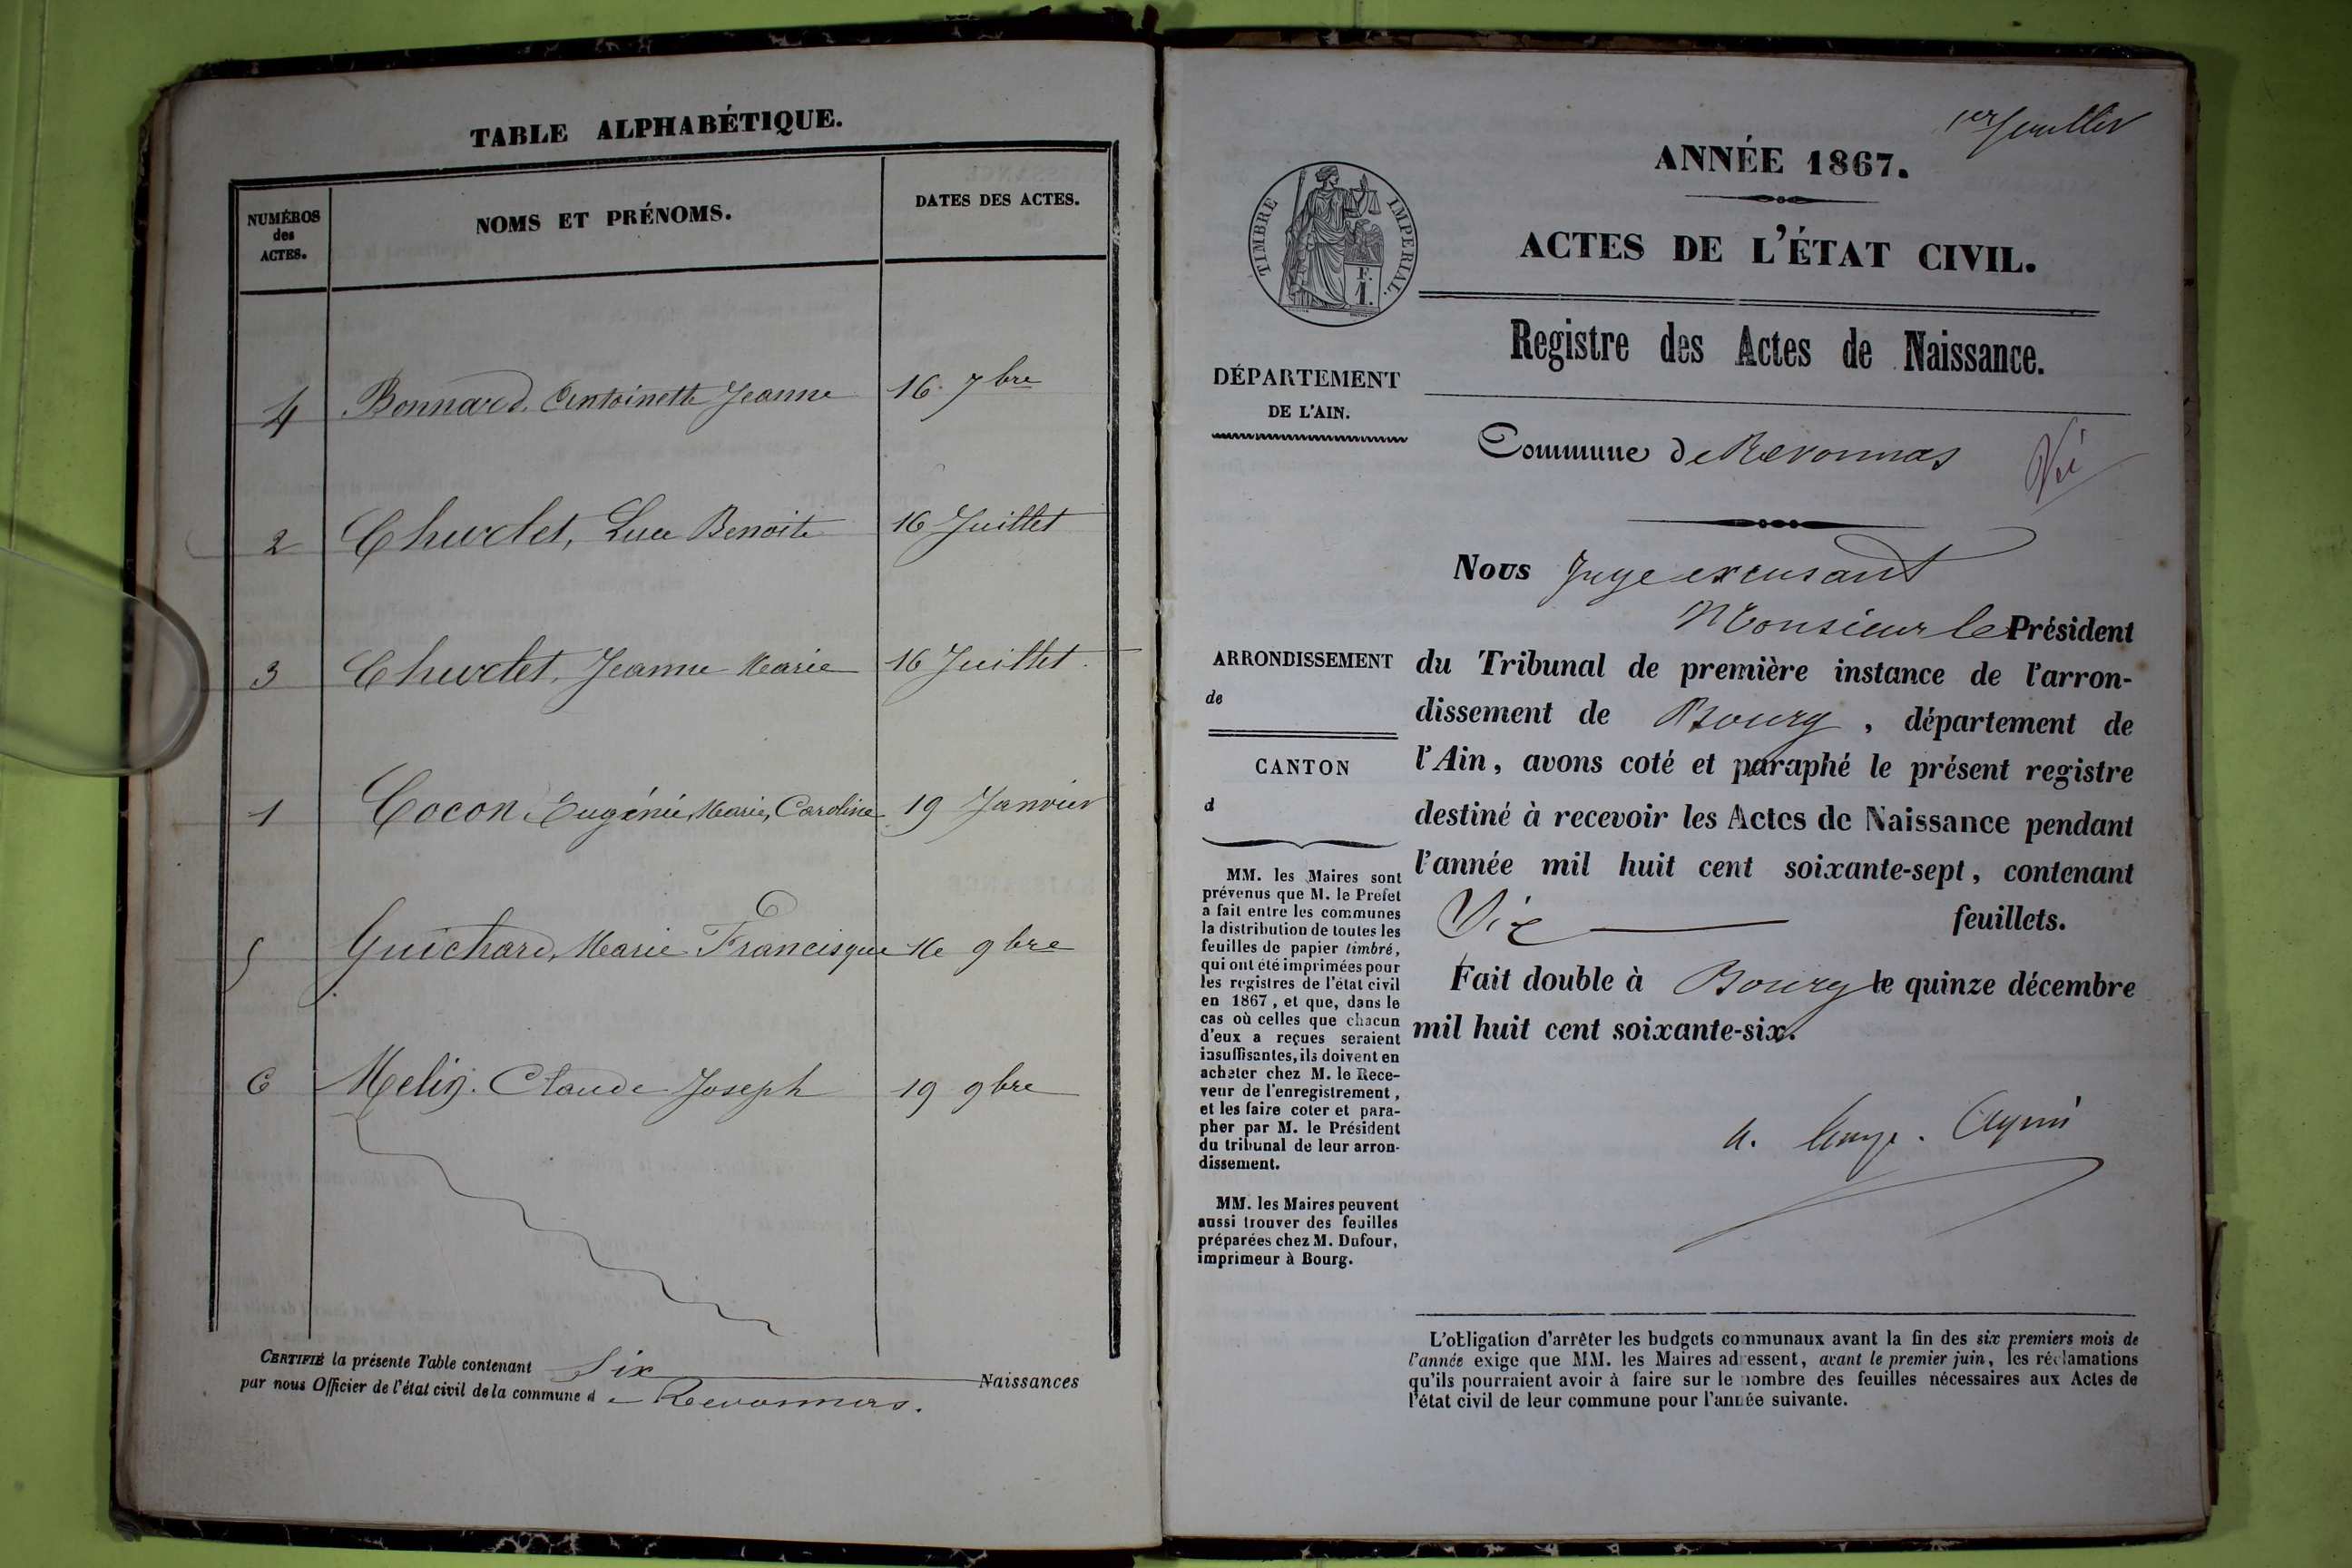 TABLE ALPHABÉTIQUE.
NUMÉROS
des
ACTES.
NOMS ET PRÉNOMS.
DATES DES ACTES.
4 Bonnard, Antoinette Jeanne 16 7bre
2 Churlet, Luce Benoite 16 Juillet
3 Churlet, Jeanne Marie 16 Juillet
1 Cocon Eugénie, Marie, Caroline 19 Janvier
5 Guichard, Marie Francisque 9bre
6 Claude Joseph 19 9bre
CERTIFIÉ la présente Table contenant Six Naissances
par nous Officier de l'état civil de la commune de Revonnas.
1er feuillet
ANNÉE 1867.
TIMBRE IMPERIAL.
ACTES DE L'ÉTAT CIVIL.
Registre des Actes de Naissance.
DÉPARTEMENT
DE L'AIN.
Commune de Revonnas
Nous Juge excusant
Monsieur le Président
du Tribunal de première instance de l'arron-
dissement de Bourg, département de
l'Ain, avons coté et paraphé le présent registre
destiné à recevoir les Actes de Naissance pendant
l'année mil huit cent soixante-sept, contenant
feuillets.
Fait double à Bourg le quinze décembre
mil huit cent soixante-six.
ARRONDISSEMENT
de
CANTON
d
MM. les Maires sont
prévenus que M. le Préfet
a fait entre les communes
la distribution de toutes les
feuilles de papier timbré,
qui ont été imprimées pour
les registres de l'état civil
en 1867, et que, dans le
cas où celles que chacun
d'eux a reçues seraient
insuffisantes, ils doivent en
acheter chez M. le Rece-
veur de l'enregistrement,
et les faire coter et para-
pher par M. le Président
du tribunal de leur arron-
dissement.
MM. les Maires peuvent
aussi trouver des feuilles
préparées chez M. Dufour,
imprimeur à Bourg.
L'obligation d'arrêter les budgets communaux avant la fin des six premiers mois de
l'année exige que MM. les Maires adressent, avant le premier juin, les réclamations
qu'ils pourraient avoir à faire sur le nombre des feuilles nécessaires aux Actes de
l'état civil de leur commune pour l'année suivante.